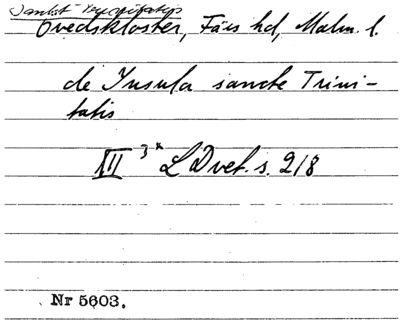 Sankt
Övedskloster, Färs hd, Malm. l.
de Insula sancte Trini-
tatis
XII 3* LDvet. s. 218
Nr 5603.